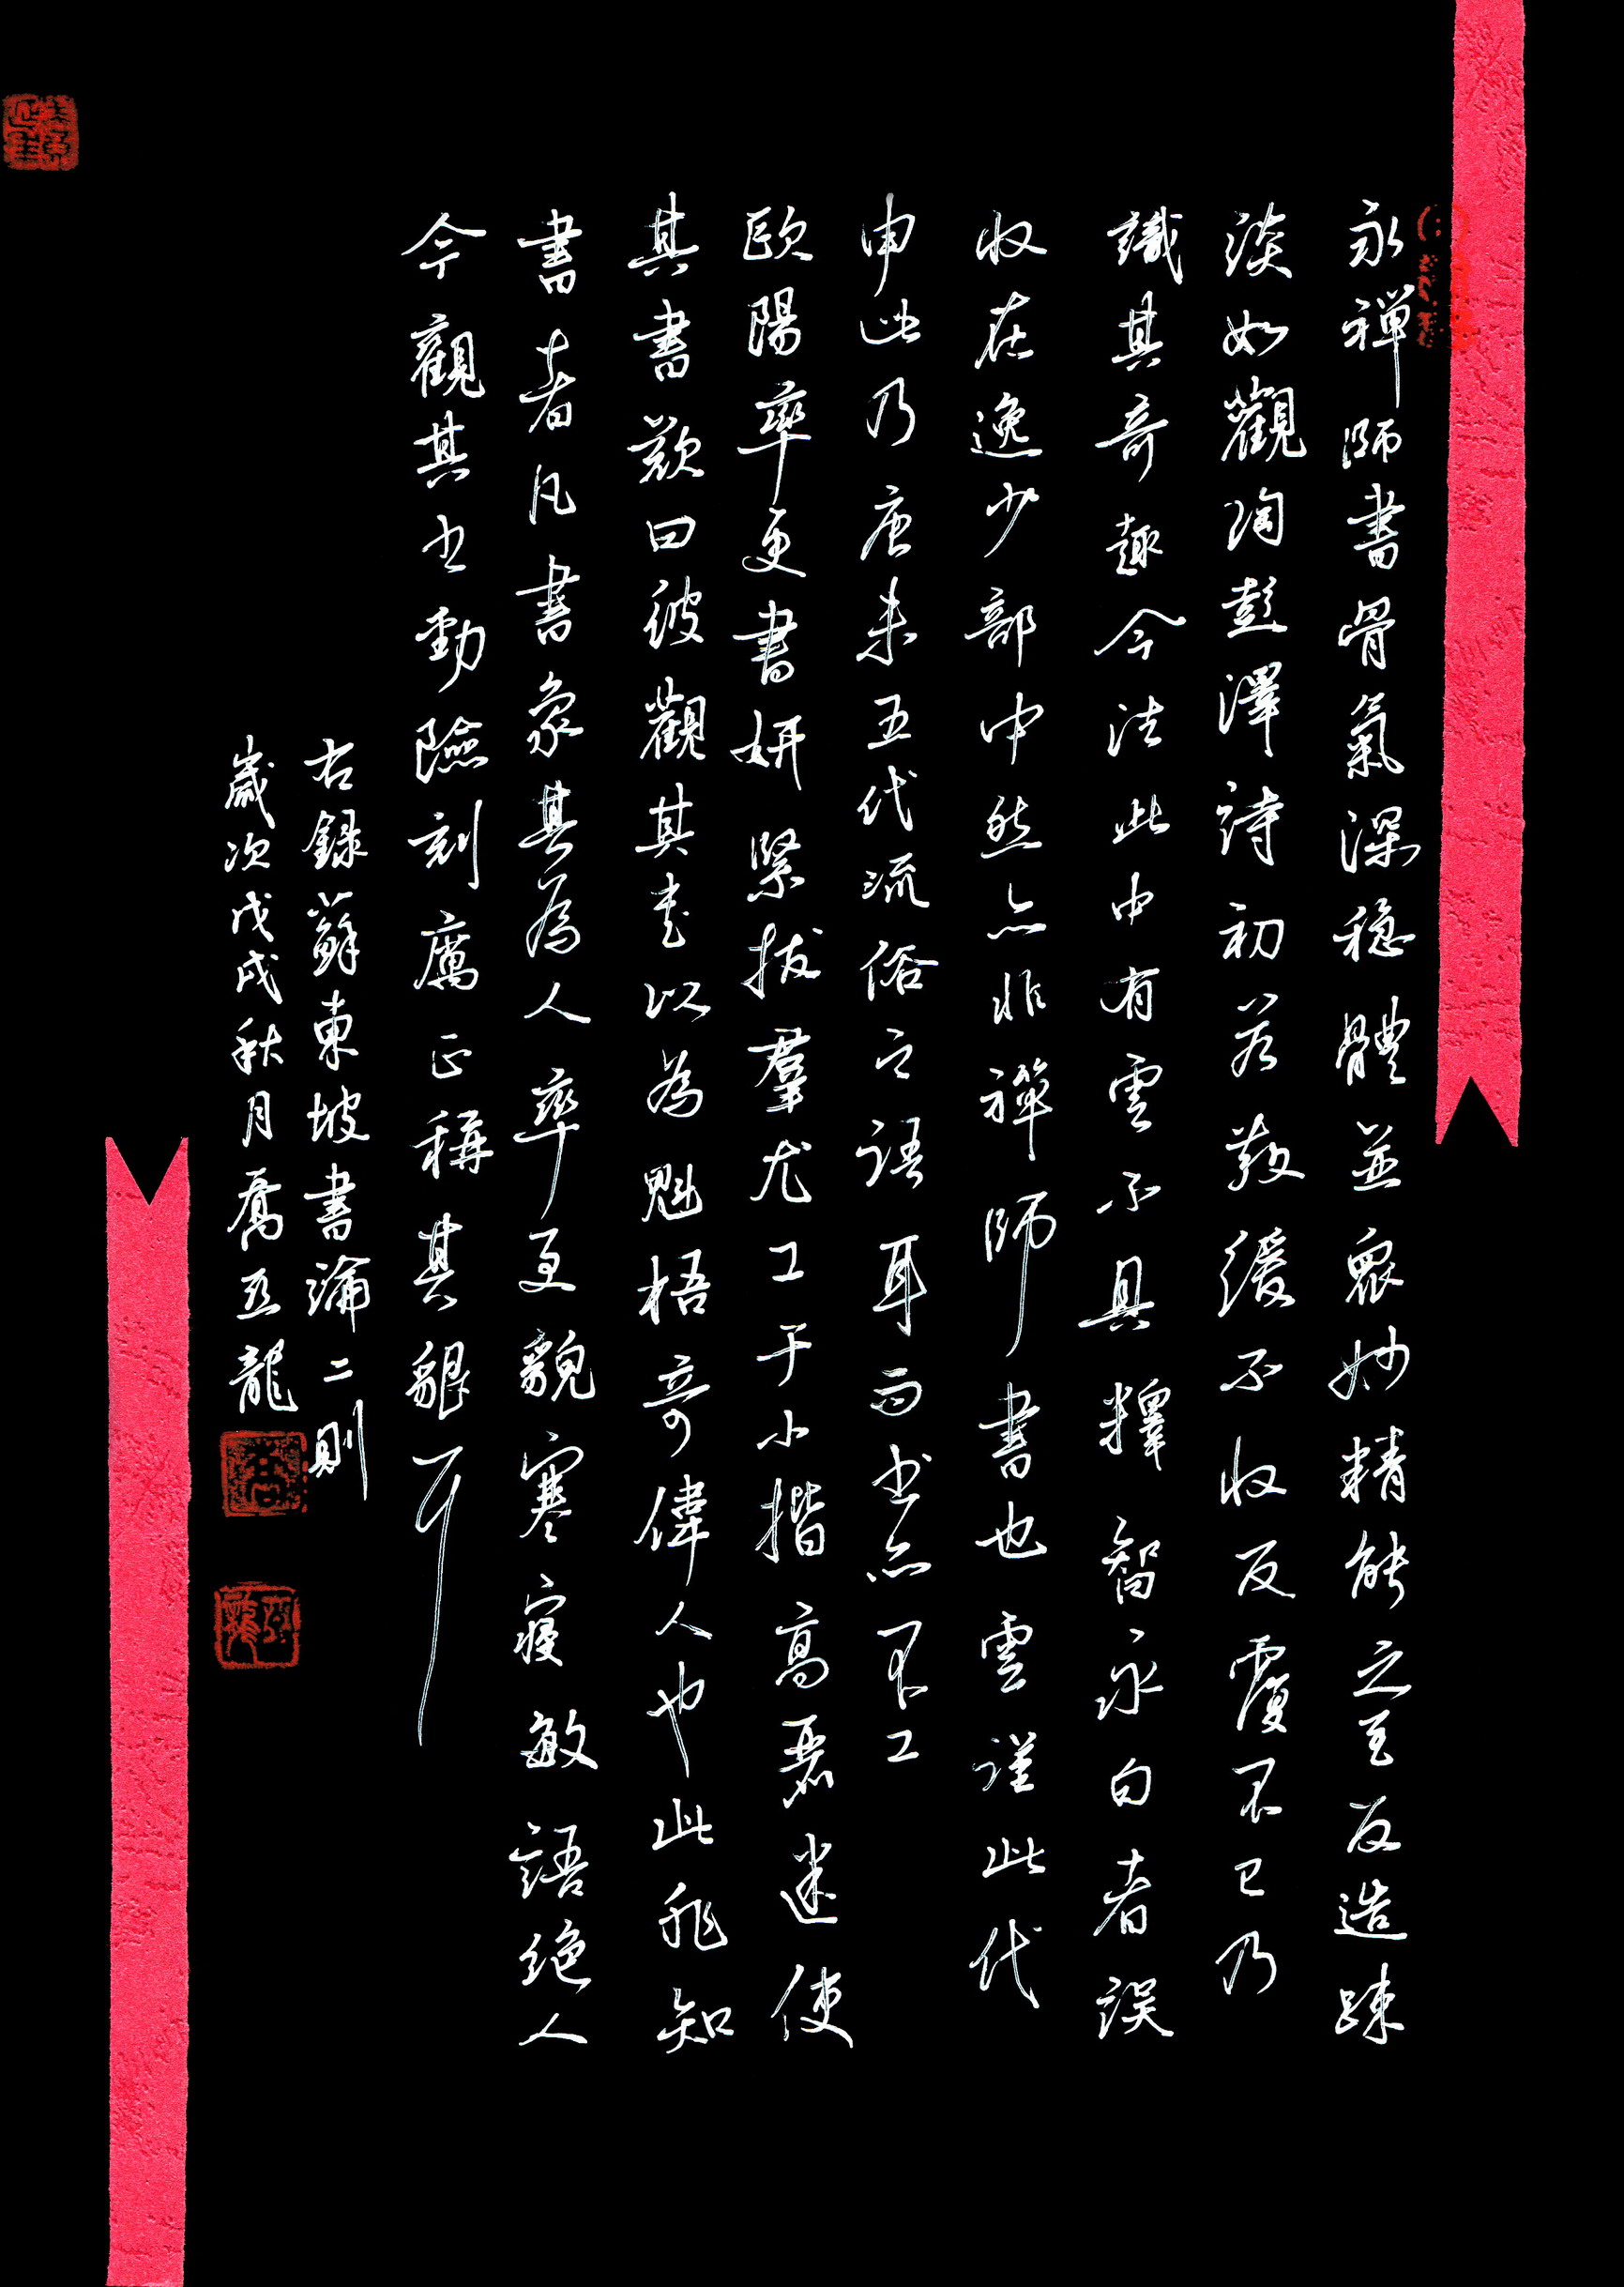 永禪師書骨氣深穩體並眾妙精能之至反造疎
淡如觀陶彭澤詩初若散緩不收反覆不已乃
識其奇趣今法此中有雲不具釋智永白者誤
收在逸少部中然亦非禪師書也雲謹此代
申此乃唐末五代流俗之語耳而书亦不工
歐陽率更書妍緊拔羣尤工于小揩高麗遣使
其書歎曰彼觀其书以為魁梧奇偉人也此非知
書者凡書象其為人率更貌寒寢敏語絶人
今觀其书勁險刻厲正稱其貌耳
右録蘇東坡書論二則
歲次戊戌秋月喬亚龍